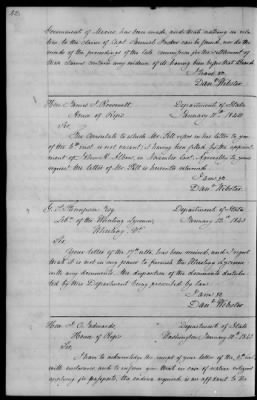 Government of Mexico has been made, and that nothing in rela
tion to the claim of Capt. can be found, nor do the
records of the proceedings of the late commission for the settlement of
these claims contain any evidence of its having been before that Board.
I have &c
Danl. Webster
Hon. James I. Roosevelt
House of Reps
Department of State
January 11th
Sir,
The Consulate to which Mr. Pell refers in his letter to you
of the 6th inst. is not vacant; it having been filled by the appoint
ment of
request the letter of Mr. Pell is herewith returned.
I am &c
Danl. Webster
G. S. Thompson Esq
Wheeling Lyceum,
Wheeling, Va
Department of State
January 12th 1843
Sir
Your letter of the 17th ulto. has been received, and I regret
that it is not in my power to furnish the Wheeling Lyceum
with any documents, the disposition of the documents distribu
ted by this Department being prescribed by law.
I am &c
Danl. Webster
Hon. J. C. Edwards,
House of Reps
Department of State
Washington, January 1843
Sir,
I have to acknowledge the receipt of your letter of the
with enclosures and to inform you that in case of native citizens
applying for passports, the evidence required is an affidavit to the